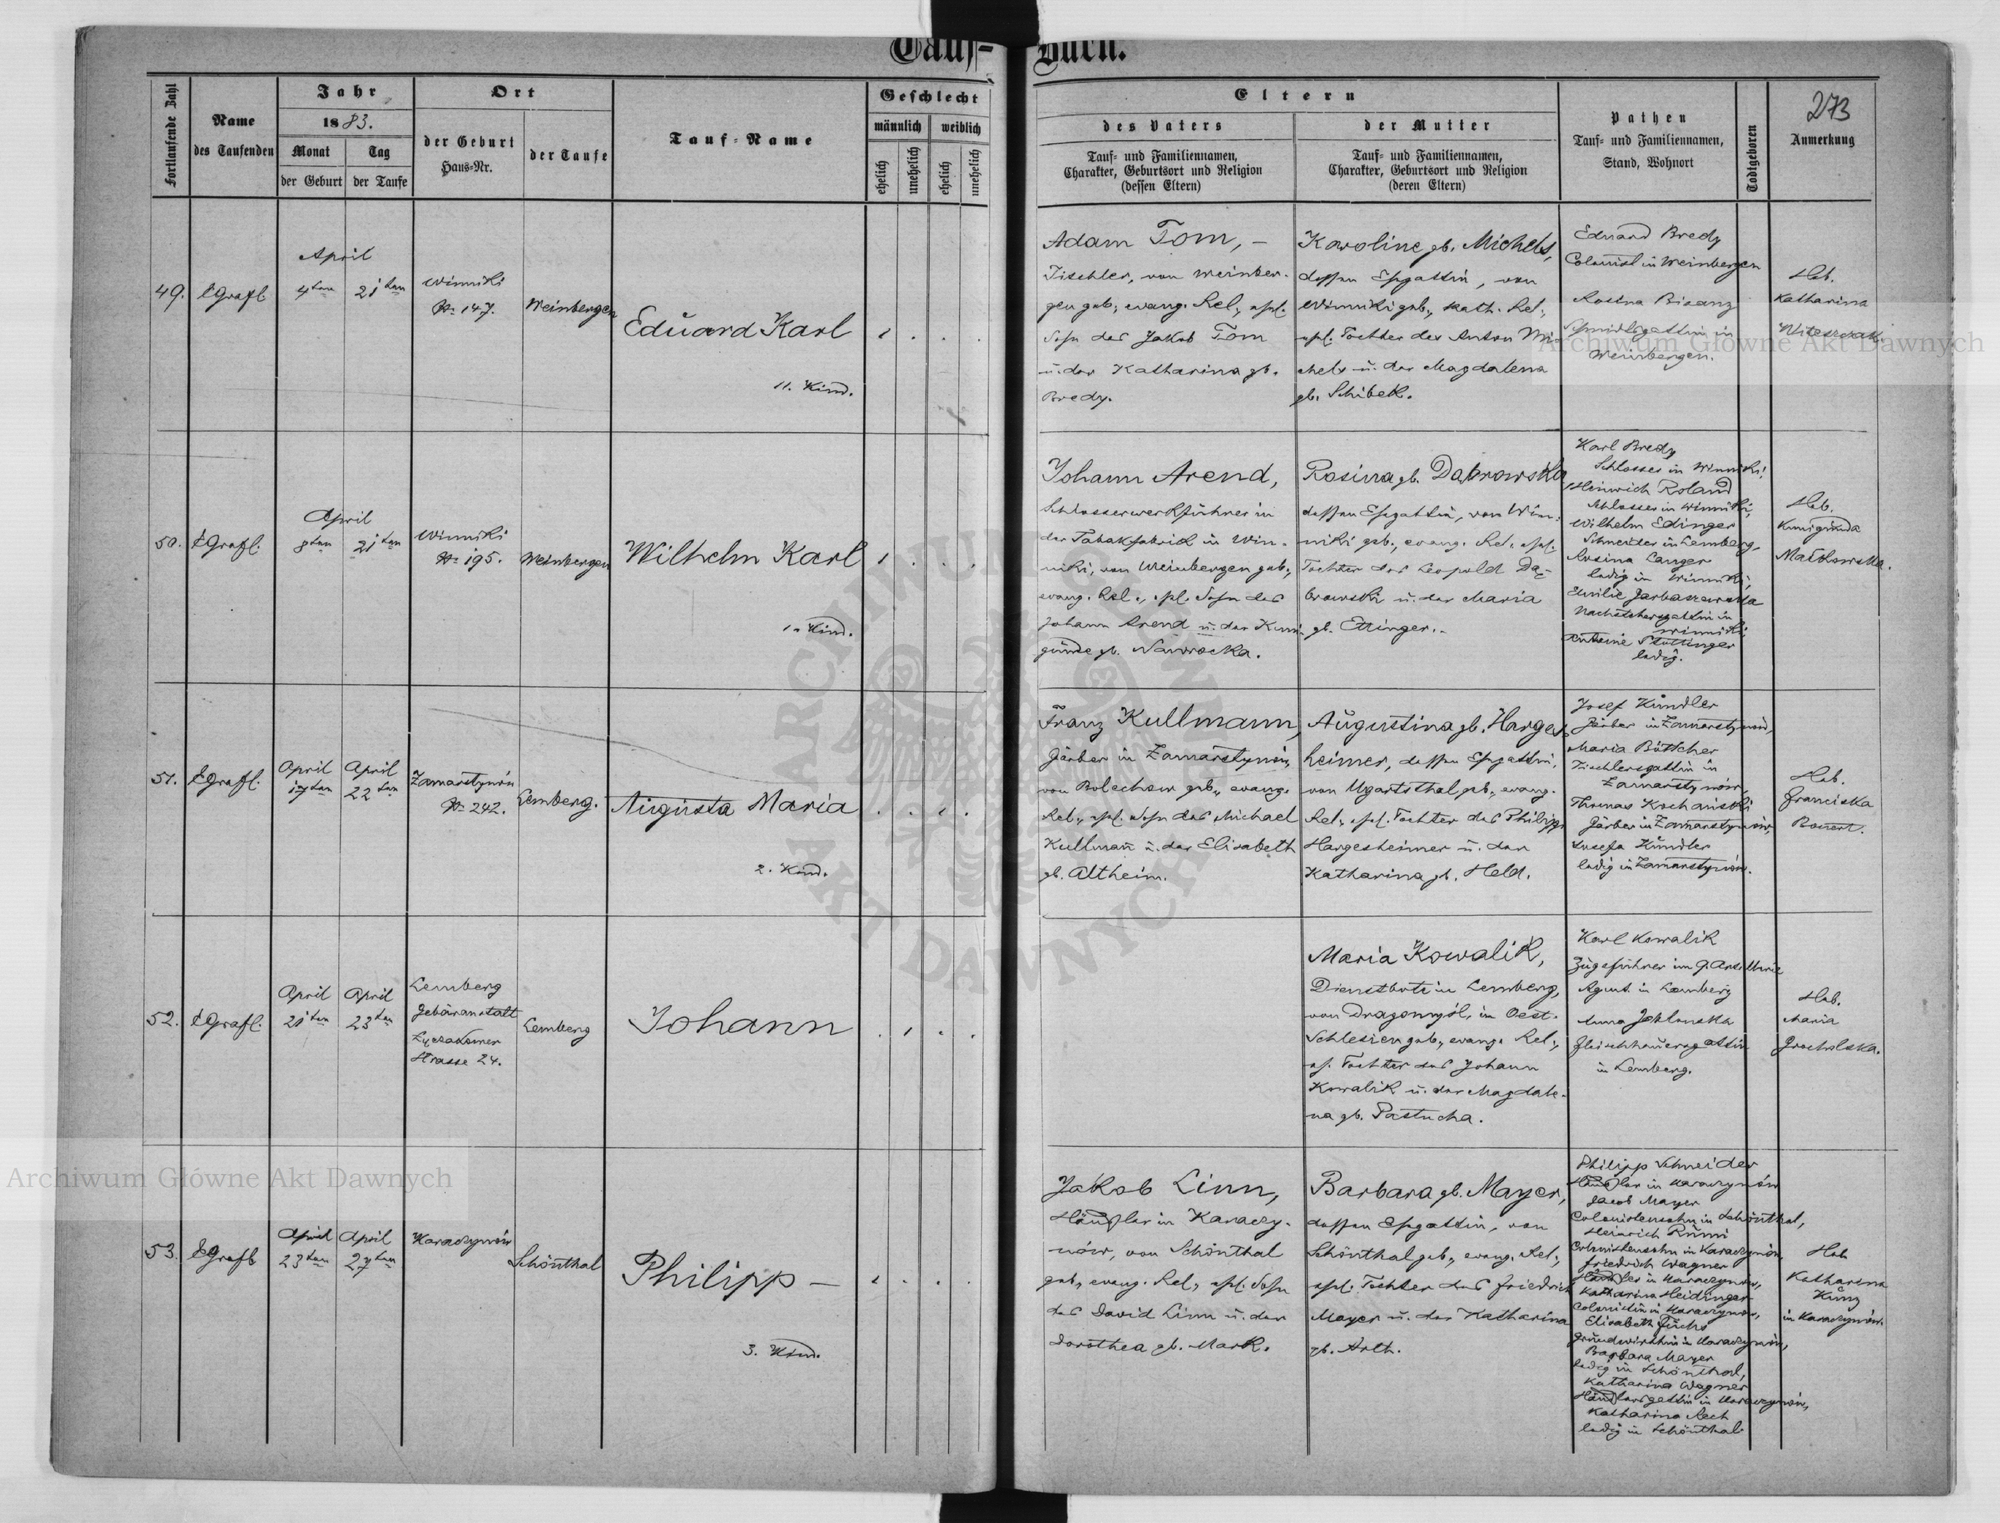 Tauf-Buch.
Fortlaufende Zahl
Name
des Taufenden
Jahr
1883.
Monat
der Geburt
Tag
der Taufe
Ort
der Geburt
Haus-Nr.
der Taufe
Tauf-Name
Geschlecht
männlich
weiblich
ehelich
unehelich
ehelich
unehelich
Eltern
des Vaters
Tauf- und Familiennamen,
Charakter, Geburtsort und Religion
(dessen Eltern)
der Mutter
Tauf- und Familiennamen,
Charakter, Geburtsort und Religion
(deren Eltern)
Pathen
Tauf- und Familiennamen,
Stand, Wohnort
Todtgeboren
273
Anmerkung
49.
April
4ten
21ten
Winniki
No 147.
Weinbergen
Eduard Karl
11. Kind.
Adam Tom, -
Tischler, von Weinber-
gen geb., evang. Rel., ehel.
Sohn des Jakob Tom
u. der Katharina gb.
Bredy.
Karoline gb. Michels,
dessen Ehegattin, von
Winniki geb., kath. Rel.,
ehel. Tochter des Anton Mi-
chels u. der Magdalena
gb. Schibek.
Eduard Bredy
Colonist in Weinbergen
Rosina Bisanz
Schmidtsgattin in
Weinbergen.
Heb.
Katharina
50.
April
8ten
21ten
Winniki
No 195.
Weinbergen
Wilhelm Karl
1. Kind.
Johann Arend,
Schlosserwerkführer in
der Tabakfabrik in Win-
niki, von Weinbergen geb.,
evang. Rel., ehel. Sohn des
Johann Arend u. der Kuni-
gunde gb. Nawrocka.
Rosina gb. Dabrowska
dessen Ehegattin, von Win-
niki geb., evang. Rel., ehel.
Tochter des Leopold Da-
browski u. der Maria
gb. Ettinger.
Karl Bredy
Schlosser in Winniki,
Heinrich Roland
Schlosser in Winniki,
Wilhelm Edinger
Schneider in Lemberg,
Rosina Langer
ledig in Winniki,
Emilie
in
Winniki
ledig.
Heb.
Kunigunda
Malkowska.
51.
April
17ten
April
22ten
Zamarstynów
No 242.
Lemberg.
Augusta Maria
2. Kind.
Franz Kullmann,
Gärber in Zamarstynów,
von Bolechow geb., evang.
Rel., ehel. Sohn des Michael
Kullmañ u. der Elisabeth
gb. Altheim.
Augustina gb. Harges-
heimer, dessen Ehegattin,
von Ugartsthal geb., evang.
Rel., ehel. Tochter des Philipp
Hargesheimer u. der
Katharina gb. Held.
Josef Kindler
Gärber in Zamarstynów,
Maria Böttcher
Tischlersgattin in
Zamarstynów,
Thomas Kochański
Gärber in Zamarstynów,
Josefa Kindler
ledig in Zamarstynów.
Heb.
Franciska
52.
April
21ten
April
23ten
Lemberg
Gebäranstalt
Łyczakower
Strasse 24.
Lemberg
Johann
Maria Kowalik,
Dienstbote in Lemberg,
von Dragomyśl, in Oest.
Schlesien geb., evang. Rel.,
eh. Tochter des Johann
Kowalik u. der Magdale-
na gb. Pastucha.
Karl Kowalik
Zugsführer im 9. Artillerie
Regmt. in Lemberg
Anna
Fleischhauersgattin
in Lemberg.
Heb.
Maria
Grocholska.
53.
April
23ten
April
27ten
Karaczynów
Schönthal
Philipp -
3. Kind.
Jakob Linn,
Händler in Karaczy-
nów, von Schönthal
geb., evang. Rel., ehel. Sohn
des David Linn u. der
Dorothea gb. Mark.
Barbara gb. Mayer,
dessen Ehegattin, von
Schönthal geb., evang. Rel.,
ehel. Tochter des Friedrich
Mayer u. der Katharina
gb. Arth.
Philipp Schneider
Händler in Karaczynów
Jacob Mayer
Colonistensohn in Schönthal,
Heinrich
Colonistensohn in Karaczynów,
Friedrich Wagner
Händler in Karaczynów,
Katharina Heidinger
Colonistin in Karaczynów,
Elisabeth Fuchs
Grundwirthin in Karaczynów,
Barbara Mayer
ledig in Schönthal,
Katharina Wagner
Händlersgattin in Karaczynów,
Katharina
ledig in Schönthal.
Heb.
Katharina
Kunz
in Karaczynów.
Archiwum Główne Akt Dawnych
Archiwum Główne Akt Dawnych
ARCHIWUM GŁÓWNE AKT DAWNYCH